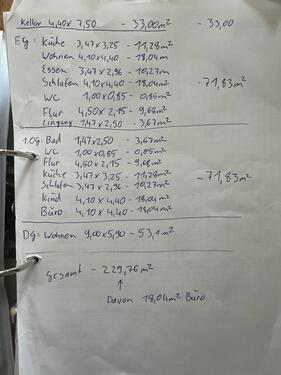 Keller 4,40x 7,50 - 33,00m² - 33,00
EG: Küche 3,47x3,25 - 11,28m²
Wohnen 4,10x4,40 - 18,04m
Essen 3,47x2,96 - 10,27m
Schlafen 4,10x4,40 - 18,04m² - 71,83m²
WC 1,00x0,85 - 0,85m²
Flur 4,50x2,15 - 9,68m²
Eingang 1,47x2,50 - 3,67m²
1.OG: Bad 1,47x2,50 - 3,67m²
WC 1,00x0,85 - 0,85m²
Flur 4,50x2,15 - 9,68m²
Küche 3,47x3,25 - 11,28m²
Schlafen 3,47x2,96 - 10,27m² - 71,83m²
Kind 4,10x4,40 - 18,04m²
Büro 4,10x4,40 - 18,04m²
DG: Wohnen 9,00x5,90 - 53,1m²
gesamt - 229,76m²
↑
Davon 18,04m² Büro